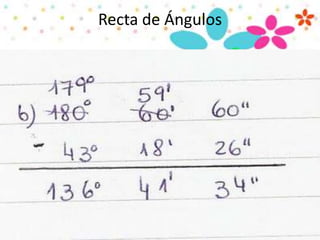 Recta de Ángulos
179° 59'
b) 180° 60' 60"
- 43° 18' 26"
136° 41' 34"